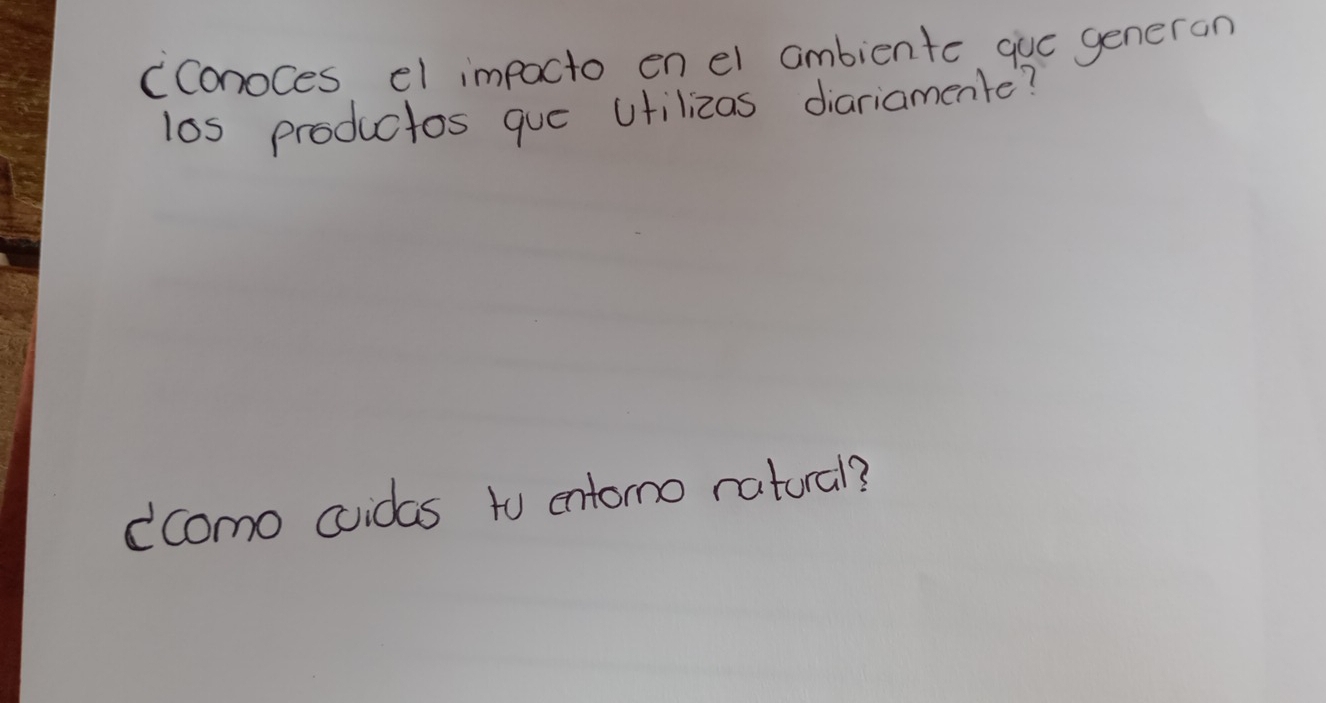 ¿Conoces el impacto en el ambiente que generan
los productos que utilizas diariamente?
¿Como cuidas tu entorno natural?